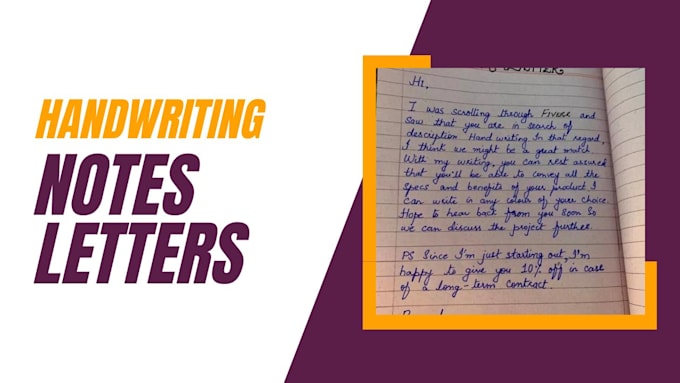 HANDWRITING
NOTES
LETTERS
Hi,
I was scrolling through FIVERR and
saw that you are in search of
description. Hand writing In that regard,
I think we might be a great match
With my writing, you can rest assured
that you'll be able to convey all the
specs and benefits of your product I
can write in any colour of your choice.
Hope to hear back from you soon so
we can discuss the project further.
PS Since I'm just starting out, I'm
happy to give you 10% off in case
of a long-term contract.